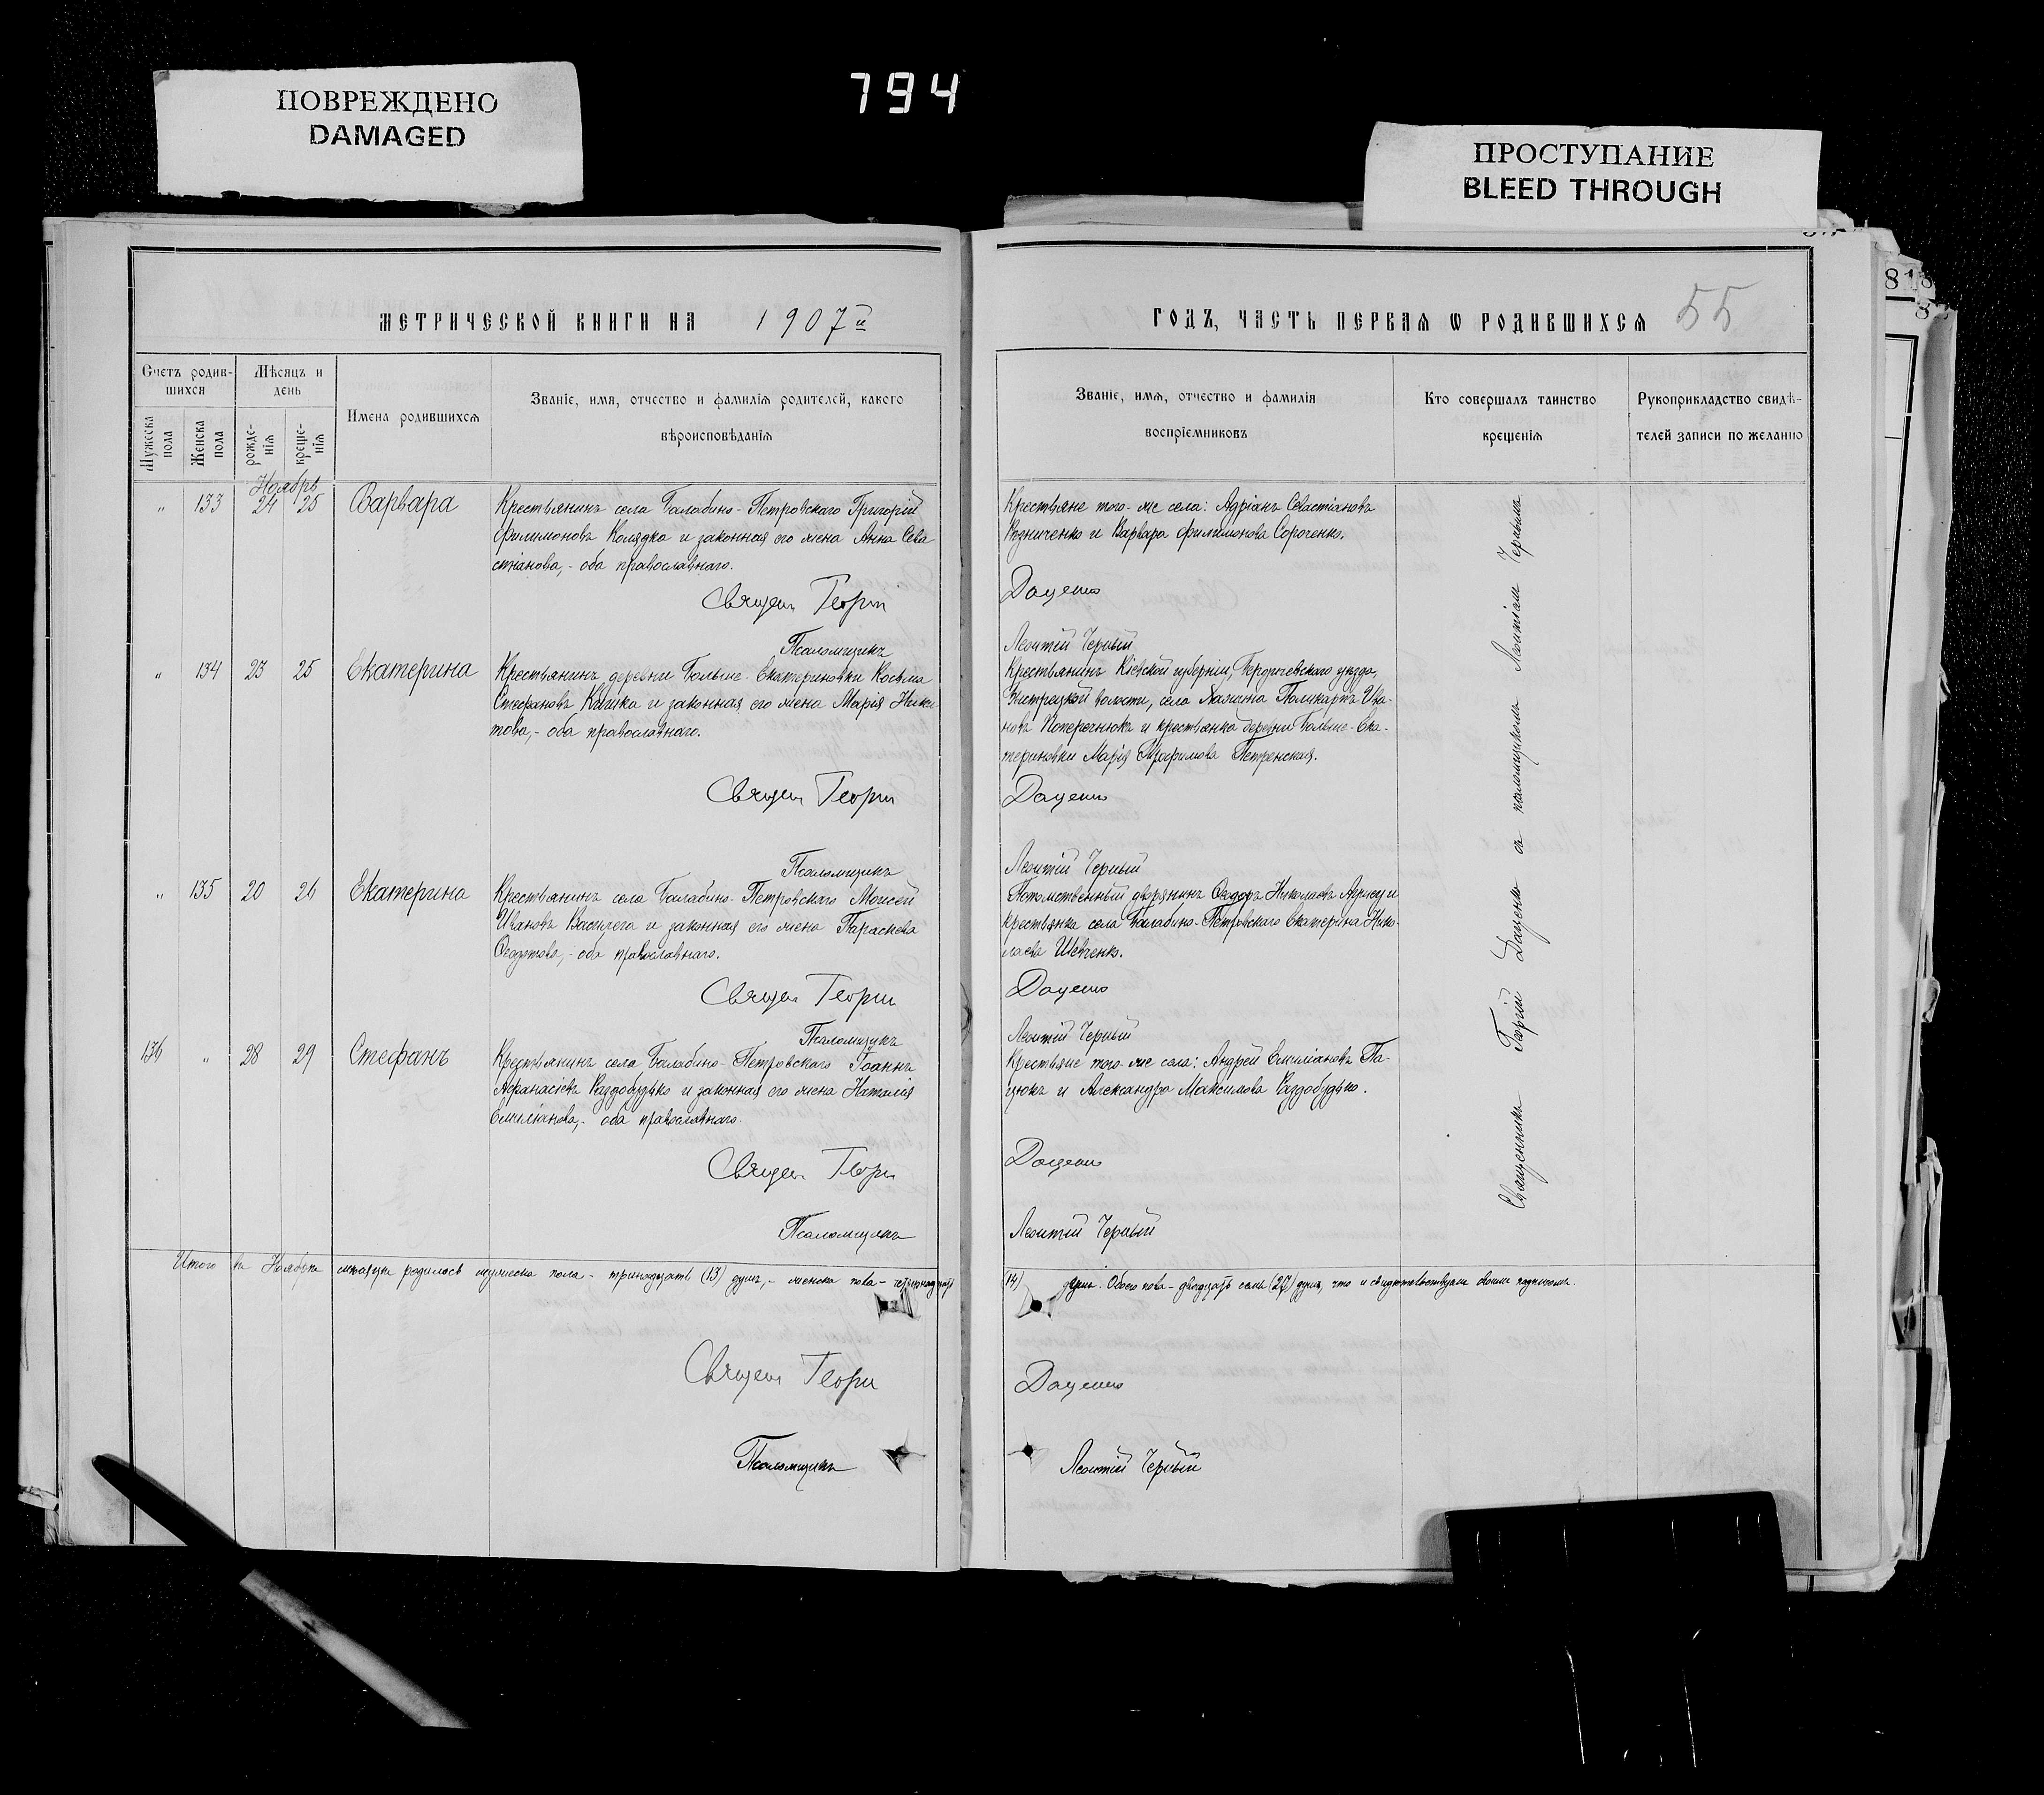 794
ПОВРЕЖДЕНО
DAMAGED
ПРОСТУПАНИЕ
BLEED THROUGH
МЕТРИЧЕСКОЙ КНИГИ НА 1907й
Счетъ родив-
шихся
Мѣсяцъ и
день
Мужеска
пола
Женска
пола
рожде-
нія
креще-
нія
Имена родившихся
Званіе, имя, отчество и фамилія родителей, какого
вѣроисповѣданія
Ноябрь
" 133 24 25 Варвара
Крестьянинъ села Балабино-Петровскаго Григорій
Филимоновъ Колядка и законная его жена Анна Сева
стіанова,- оба православнаго.
Священ Георгій
Псаломщикъ
" 134 23 25 Екатерина
Крестьянинъ деревни Больше-Екатериновки Косьма
Стефановъ и законная его жена Марія Ники
това,- оба православнаго.
Священ Георгій
Псаломщикъ
" 135 20 26 Екатерина
Крестьянинъ села Балабино-Петровскаго Моисей
Ивановъ и законная его жена Параскева
Ѳеодотова,- оба православнаго.
Священ Георгій
Псаломщикъ
136 " 28 29 Стефанъ
Крестьянинъ села Балабино-Петровскаго Іоаннъ
Аѳанасіевъ Раздобудько и законная его жена Наталія
Емиліанова,- оба православнаго.
Священ Георгій
Псаломщикъ
Итого въ Ноябрѣ мѣсяцѣ родилось мужеска пола - тринадцать (13) душъ, - женска пола - четырнадцать
Священ Георгій
Псаломщикъ
ГОДЪ, ЧАСТЬ ПЕРВАЯ Ѡ РОДИВШИХСЯ 55
Званіе, имя, отчество и фамилія
воспріемниковъ
Кто совершалъ таинство
крещенія
Рукоприкладство свидѣ-
телей записи по желанію
Крестьяне того-же села: Адріанъ Севастіановъ
Рѣзниченко и Варвара Филимонова Сороченко.
Доценко
Леонтій Черный
Крестьянинъ Кіевской губерніи, Бердичевскаго уѣзда,
волости, села Поликарпъ Ива-
новъ Поперечнюкъ и крестьянка деревни Больше-Ека-
териновки Марія Трофимова Петренская.
Доценко
Леонтій Черный
Потомственный дворянинъ Ѳеодоръ Николаевъ и
крестьянка села Балабино-Петровскаго Екатерина Нико-
лаева Шевченко.
Доценко
Леонтій Черный
Крестьяне того-же села: Андрей Емиліановъ Па-
цюкъ и Александра Максимова Раздобудько.
Доценко
Леонтій Черный
Священникъ Георгій Доценко съ псаломщикомъ Леонтіемъ Чернымъ
14) душъ. Обоего пола - двадцать семь (27) душъ, что и свидѣтельствуемъ своимъ подписомъ.
Доценко
Леонтій Черный